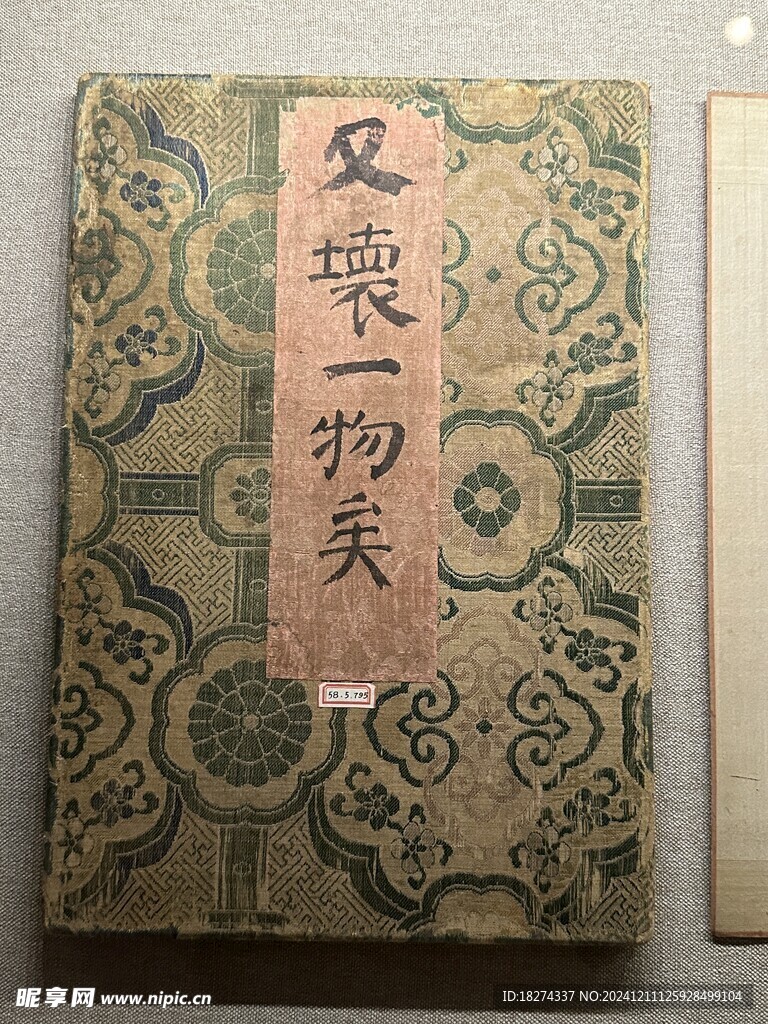 又壞一物矣
5B.5.795
昵享网 www.nipic.cn
ID:18274337 NO:20241211125928499104